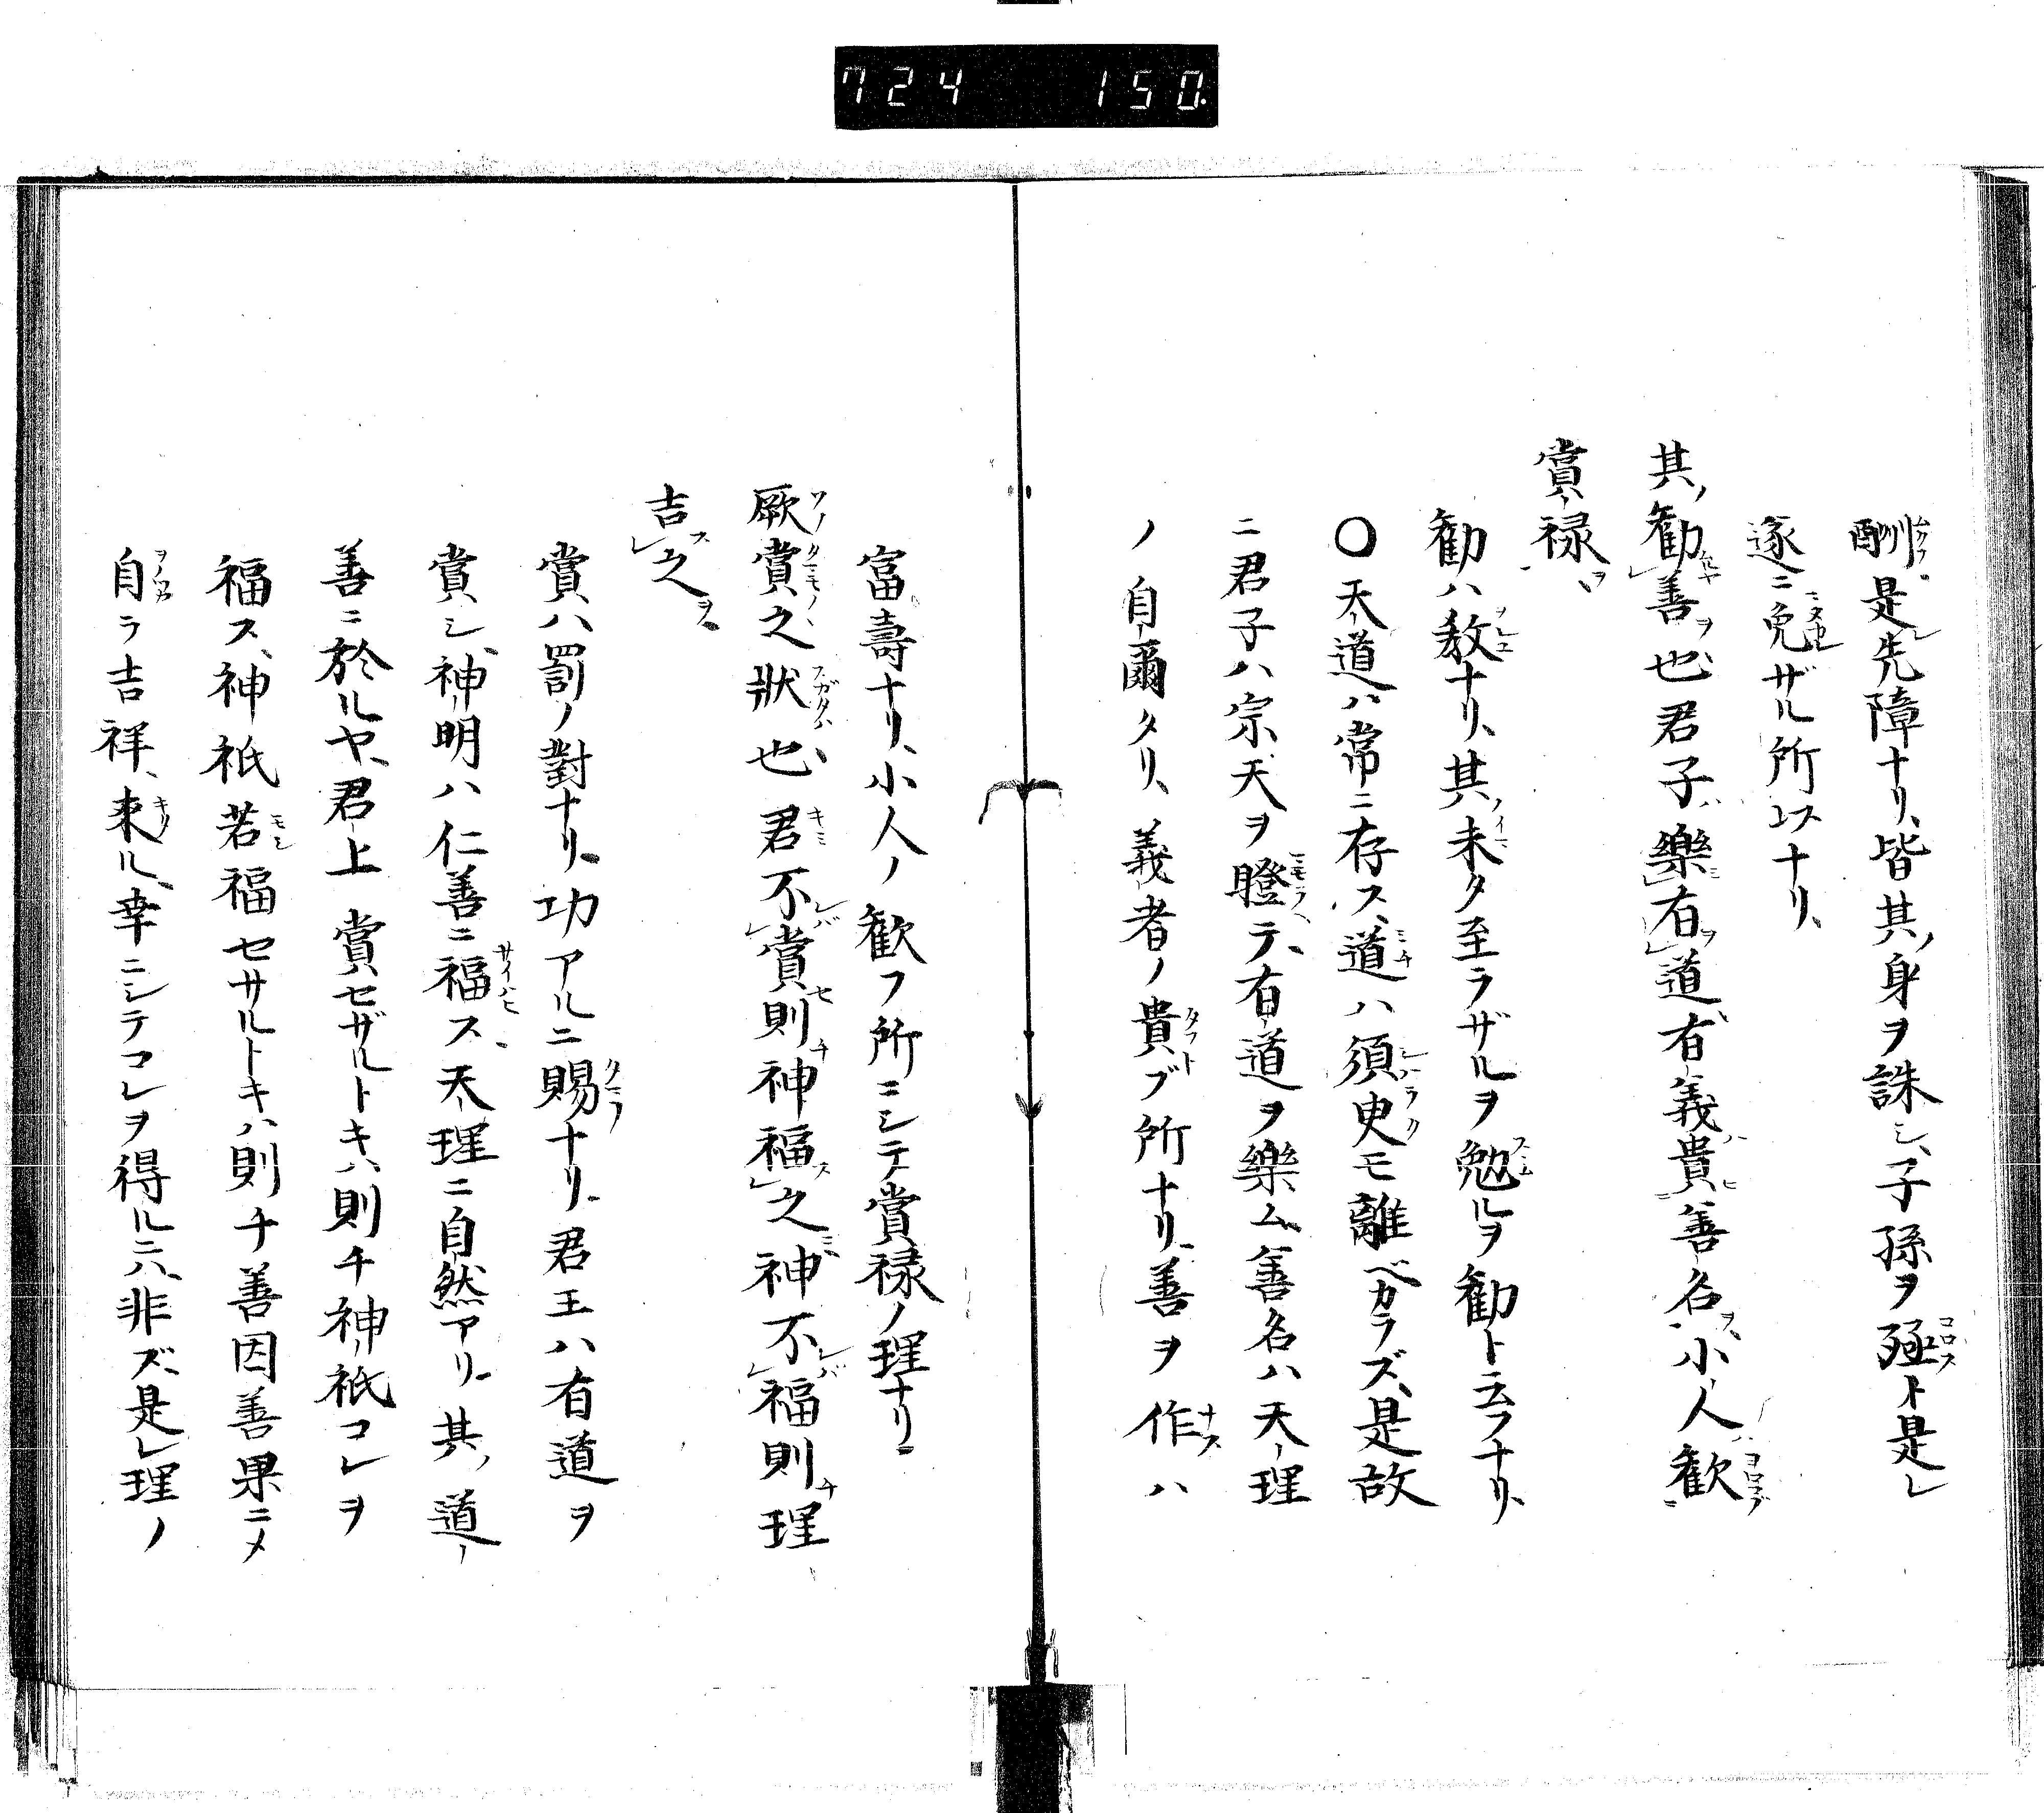 724 150.
酬是レ先障ナリ、皆其ノ身ヲ誅シ、子孫ヲ殛ト是レ
遂ニ免ザル所以ナリ、
其ノ勧善ヲ也君子ハ樂有道ヲ、有義ハ貴善名ヲ、小人ハ歓
賞禄ヲ、
勧ハ教ナリ、其ノ未タ至ラザルヲ勉ルヲ勧ト云フナリ、
〇天道ハ常ニ存ス、道ハ須臾モ離ベカラズ、是故
ニ君子ハ宗天ヲ瞪テ、有道ヲ樂ム、善名ハ天理
ノ自爾タリ、義者ノ貴ブ所ナリ、善ヲ作ハ
富壽ナリ、小人ノ歓フ所ニシテ賞禄ノ理ナリ
厥賞之狀也、君不レバ賞セ則チ神福ス之、神不レバ福則チ理
吉ス之ヲ、
賞ハ罰ノ對ナリ、功アルニ賜ナリ、君王ハ有道ヲ
賞シ、神明ハ仁善ニ福ス、天理ニ自然アリ、其ノ道ノ
善ニ於ルヤ、君上賞セザルトキハ則チ神祇コレヲ
福ス、神祇若福セサルトキハ則チ善因善果ニメ
自ラ吉祥、来ル、幸ニシテコレヲ得ルニハ非ズ、是レ理ノ